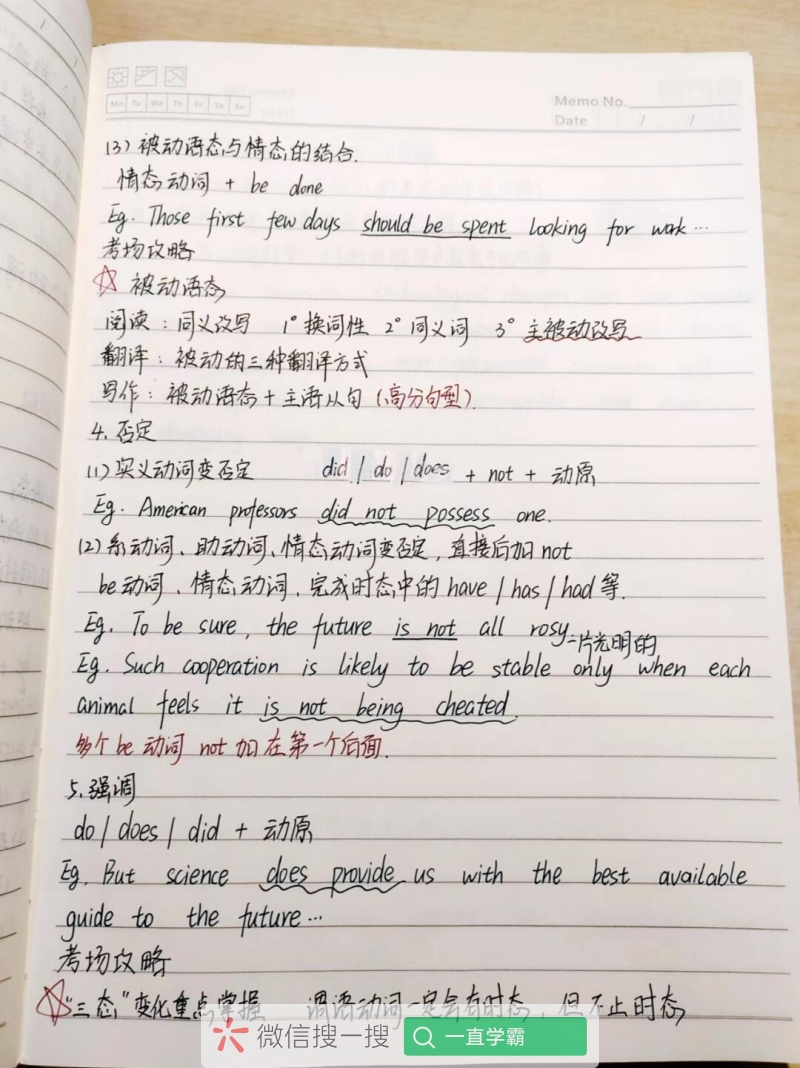 Mo Tu We Th Fr Sa Su
Memo No.
Date / /
(3) 被动语态与情态的结合.
情态动词 + be done
Eg. Those first few days should be spent looking for work…
考场攻略
☆ 被动语态
阅读：同义改写 1° 换词性 2° 同义词 3° 主被动改写
翻译：被动的三种翻译方式
写作：被动语态+主语从句 (高分句型).
4. 否定
(1) 实义动词变否定 did / do / does + not + 动原
Eg. American professors did not possess one.
(2) 系动词、助动词、情态动词变否定，直接后加 not
be动词、情态动词、完成时态中的 have / has / had 等.
Eg. To be sure, the future is not all rosy 一片光明的
Eg. Such cooperation is likely to be stable only when each
animal feels it is not being cheated.
多个 be 动词 not 加在第一个后面.
5. 强调
do / does / did + 动原
Eg. But science does provide us with the best available
guide to the future…
考场攻略
☆ "三态"变化重点掌握 谓语动词一定会有时态，但不止时态
微信搜一搜 一直学霸